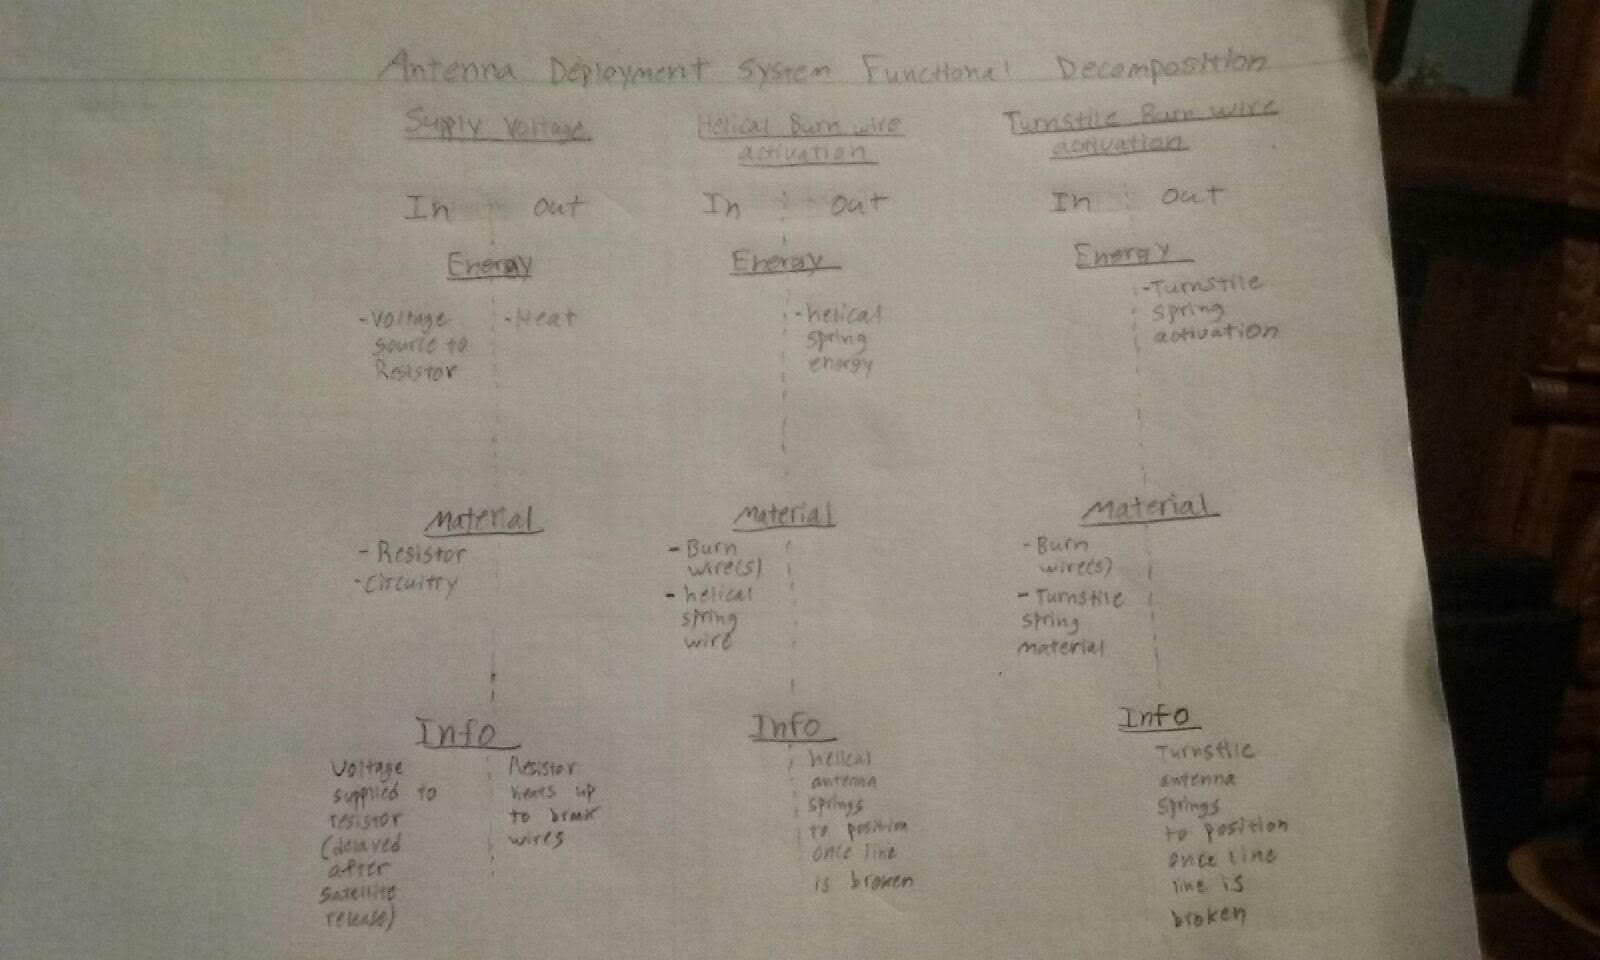 Antenna Deployment System Functional Decomposition
Supply Voltage
In out
Energy
-Voltage
source to
Resistor
-Heat
Material
- Resistor
-circuitry
Info
Voltage
supplied to
resistor
(delayed
after
satellite
release)
Resistor
heats up
to break
wires
Helical Burn wire
activation
In out
Energy
-helical
spring
energy
Material
- Burn
wire(s)
- helical
spring
wire
Info
helical
antenna
springs
to position
once line
is broken
Turnstile Burn wire
activation
In out
Energy
-Turnstile
spring
activation
Material
-Burn
wire(s)
-Turnstile
spring
material
Info
Turnstile
antenna
springs
to position
once line
line is
broken